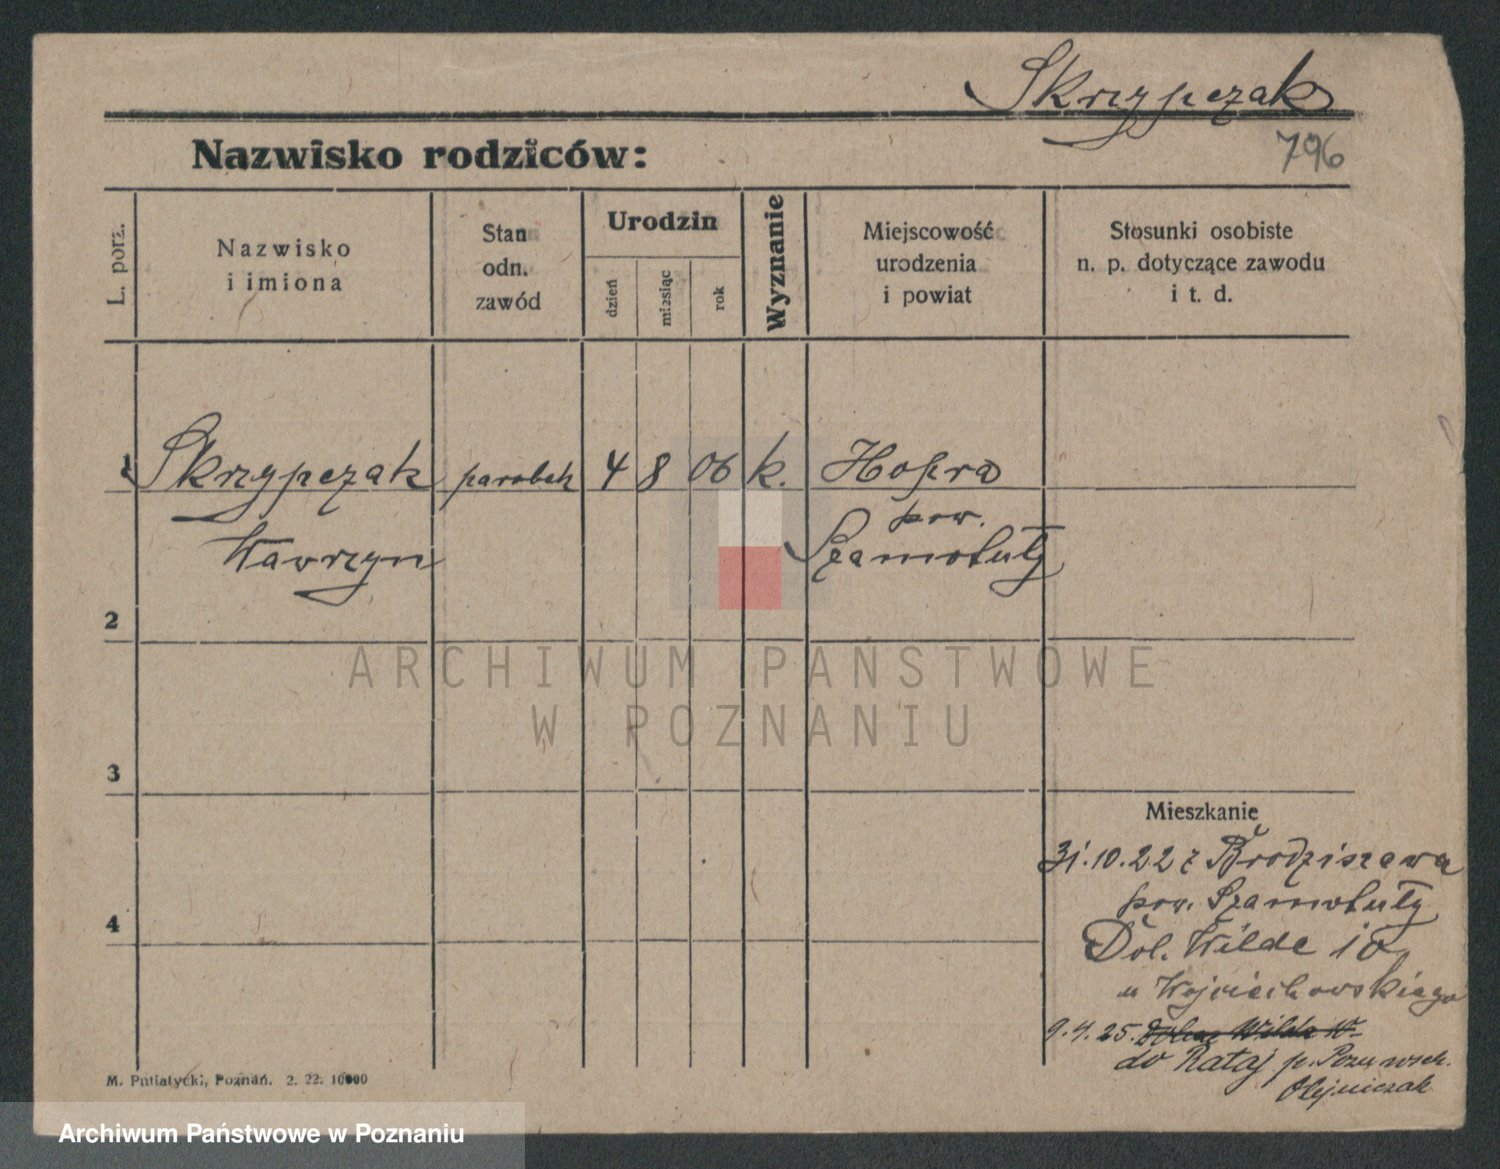 Skrzypczak
796
Nazwisko rodziców:
L. porz.
Nazwisko
i imiona
Stan
odn.
zawód
Urodzin
dzień
miesiąc
rok
Wyznanie
Miejscowość
urodzenia
i powiat
Stosunki osobiste
n. p. dotyczące zawodu
i t. d.
1 Skrzypczak parobek 4 8 06 k.
pow.
Wawrzyn Szamotuły
2
ARCHIWUM PAŃSTWOWE
W POZNANIU
3
Mieszkanie
31.10.22 z
pow. Szamotuły
4
Dol. Wilde 10
u Wojciechowskiego
9.4.25. Dolna Wilda 10
do Rataj p. Pozn. wsch.
Olejniczak
M. Putiatycki, Poznań. 2. 22. 10000
Archiwum Państwowe w Poznaniu